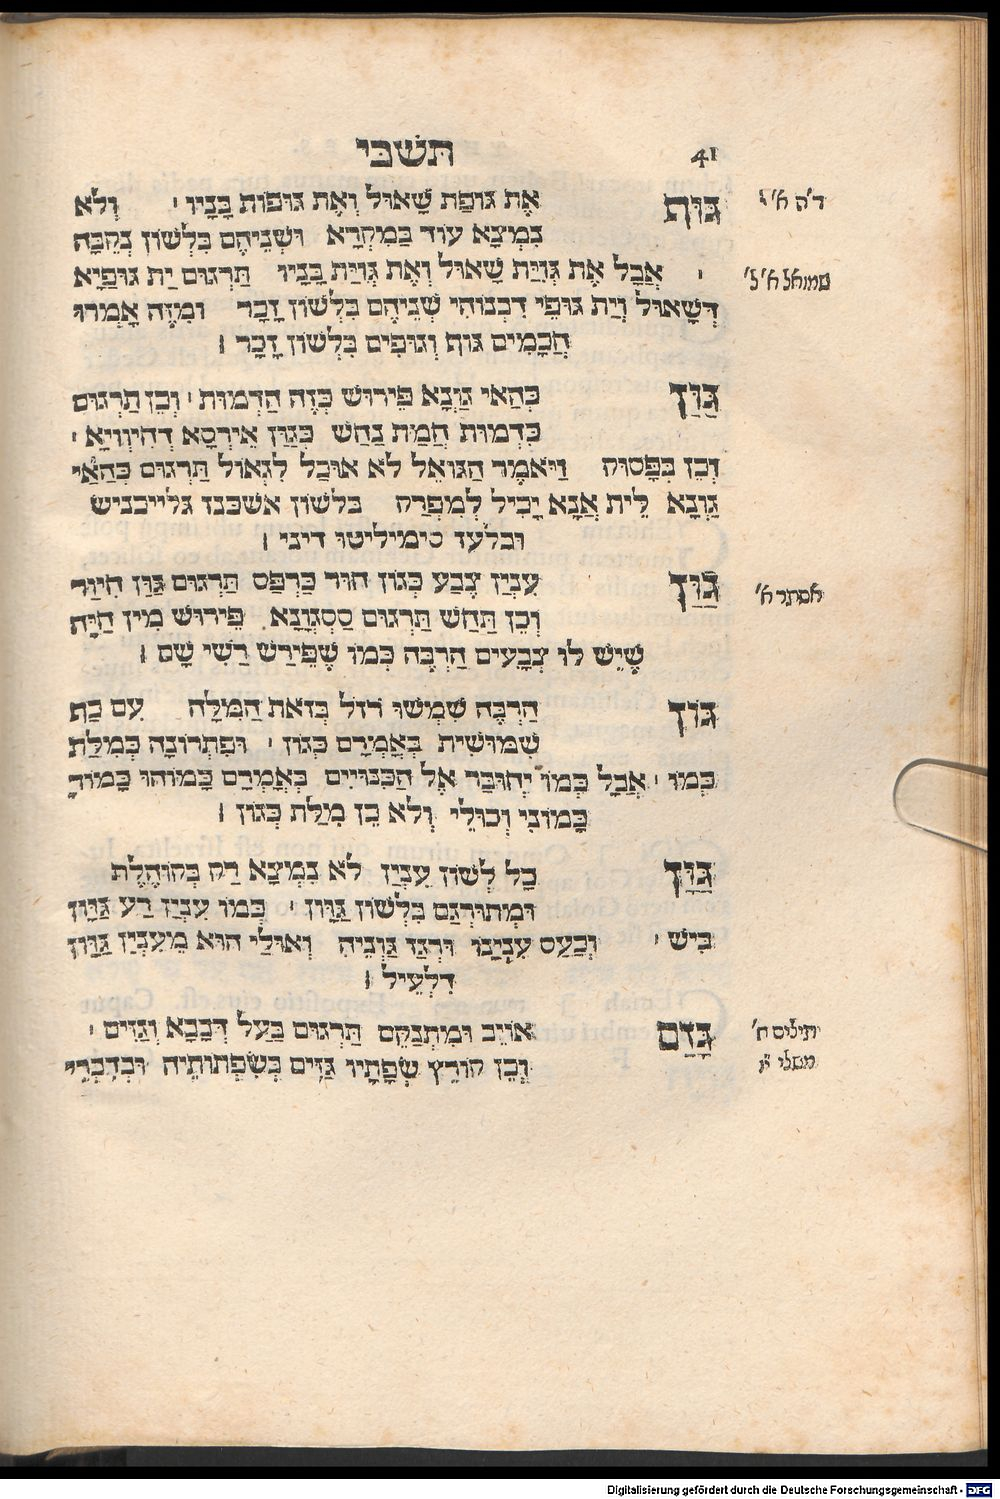 תשבי 41
גוף את גופת שאול ואת גופות בניו ׳ ולא ד״ה א׳ י
נמצא עוד במקרא ושניהם בלשון נקבה
׳ אבל את גוית שאול ואת גוית בניו תרגום ית גופיא שמואל א׳ ל׳
דשאול וית גופי דבנוהי שניהם בלשון זכר ומזה אמרו
חכמים גוף וגופים בלשון זכר ׃
גון כהאי גונא פירוש כזה הדמות ׳ וכן תרגום
כדמות חמת נחש כגון אירסא דחיוויא ׳
וכן בפסוק ויאמר הגואל לא אוכל לגאול תרגום כהאי
גונא לית אנא יכיל למפרק בלשון אשכנז גלייכניש
ובלעז סימיליטו דיני ׃
גון ענין צבע כגון חור כרפס תרגום גון חיור אסתר א׳
וכן תחש תרגום ססגונא פירוש מין חיה
שיש לו צבעים הרבה כמו שפירש רש״י שם ׃
גון הרבה שמשו רז״ל בזאת המלה עם כף
שמושית באמרם כגון ׳ ופתרונה כמלת
כמו ׳ אבל כמו יחובר אל הכנויים באמרם כמוהו כמוך
כמוני וכולי ולא כן מלת כגון ׃
גון כל לשון ענין לא נמצא רק בקוהלת
ומתורגם בלשון גוון ׳ כמו ענין רע גוון
ביש ׳ וכעס ענינו ורגז גוניה ואולי הוא מענין גוון
דלעיל ׃
גזם אויב ומתנקם תרגום בעל דבבא וגזים ׳ תילים ח׳
וכן קורץ שפתיו גזים בשפתותיה ובדברי משלי י״ו
Digitalisierung gefördert durch die Deutsche Forschungsgemeinschaft - DFG